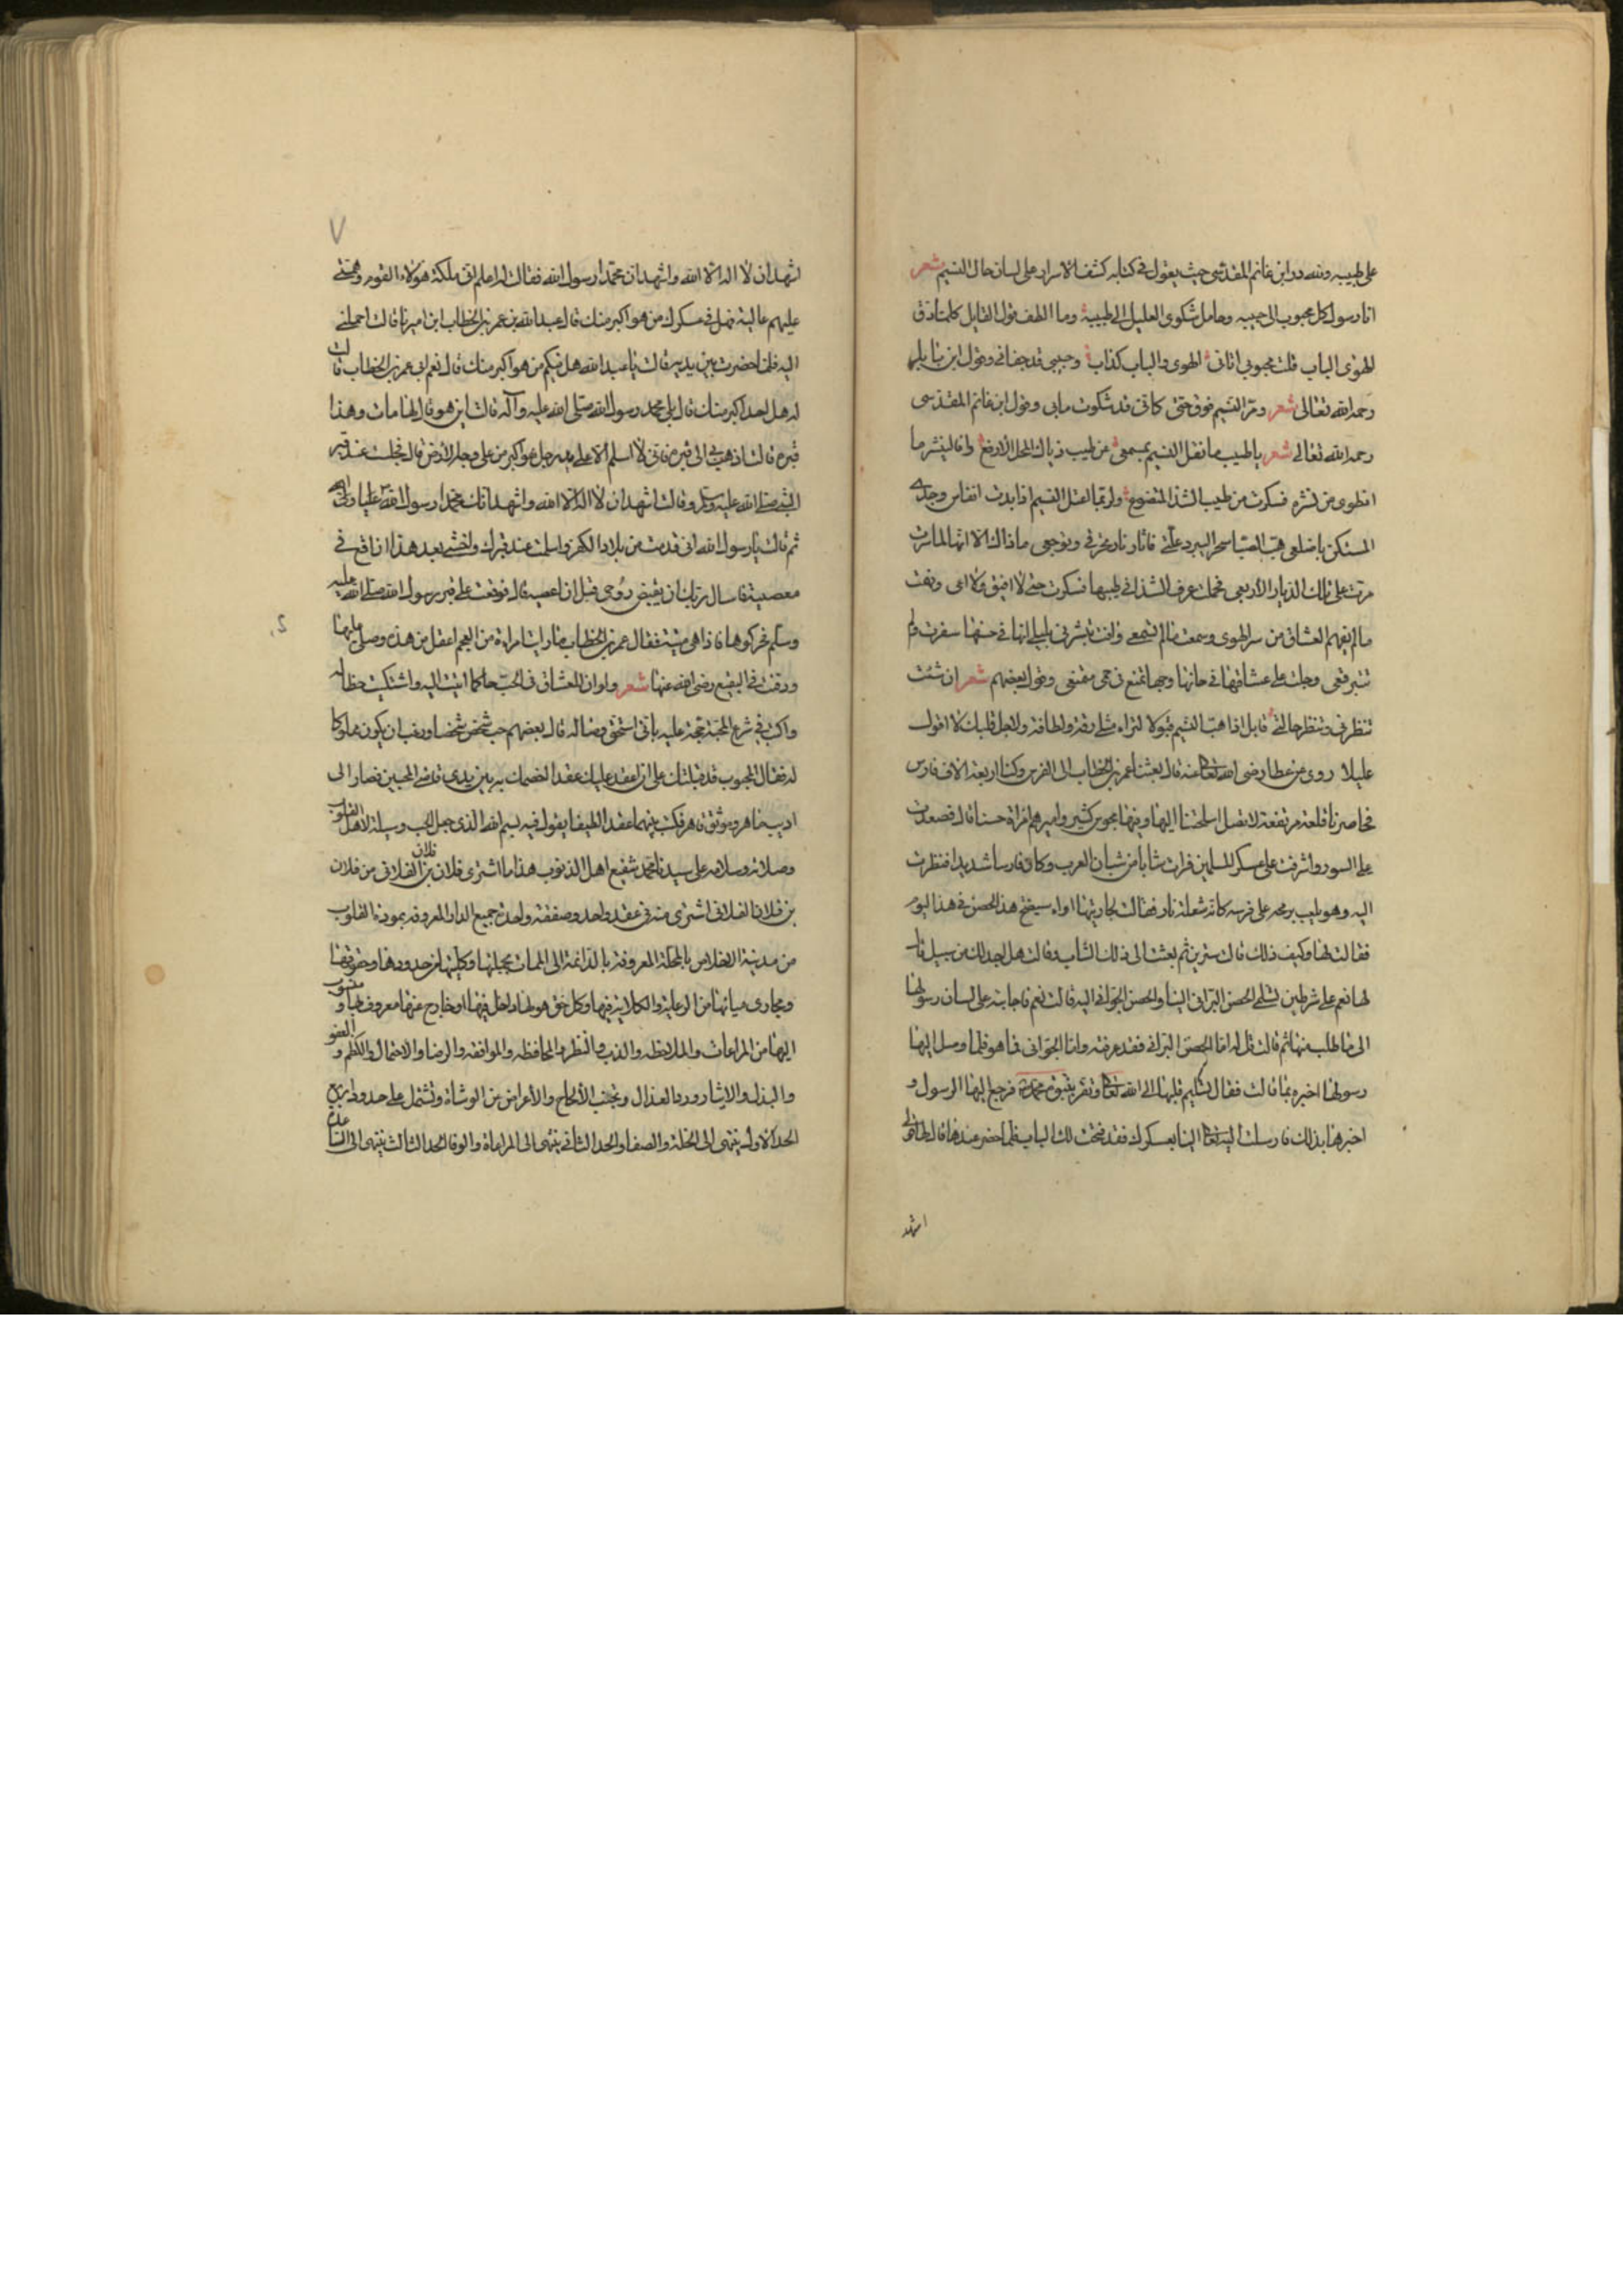 على طبيبه ولله در ابن غانم المقدسى حيث يقول فى كتابه كشف الاسرار على لسان حال النسيم شعر
انا رسول كل محبوب الى حبيبه وحامل شكوى العليل الى طبيبه وما الطف قول القايل كلما دق
الهوى الباب قلت محبوبى اتانى الهوى والباب كذاب وحبيبى قد جفانى وقول ابن
رحمه الله تعالى شعر ومر النسيم فوق حتى كانى قد شكوت مابى وقول ابن غانم المقدسى
رحمه الله تعالى شعر يا طيب ما نقل النسيم بمسمعى عن طيب ذياك المحل الارفع وافا لينشر ما
انطوى من نشره فسكرت من طيب الشذا المتضوع ولربما اعتل النسيم اذا بدت انفاس وجدى
المستكن باضلعى هب الصبا سحرا ليبرد علتى فاثار نار تحرقى وتوجعى ما ذاك الا انها لما سرت
مرت على تلك الديار الاربعى فحملت عرف الشذا فى طيبها فسكرت حتى لا افيق ولا اعى وفهمت
ما لم يفهم العشاق من سر الهوى وسمعت ما لم تسمعى واتت تبشرنى بليلى انها فى حسنها سفرت ولم
تتبرقعى وجلت على عشاقها فى حانها وجها تمنع فى حمى وقول بعضهم شعر ان شئت
تنظرنى وتنظر حالتى قابل اذا هب النسيم قبولا لتراه مثلى رقة ولطافة ولاجل قلبك لا اقول
عليلا روى عن عطا رضى الله تعالى عنه قال بعثنا عمر بن الخطاب الى الفرس وكنا اربعة الاف فارس
فحاصرنا قلعة مرتفعة لا تصل اسلحتنا اليها وبها مجوس كثير واميرهم امراة حسنا قال فصعدت
على السور واشرفت على عسكر المسلمين فرات شابا من شبان العرب وكان فارسا شديدا فنظرت
اليه وهو يلعب برمحه على فرسه كانه شعلة نار فقالت لجاريتها اواه سيفتح هذا الحصن فى هذا اليوم
فقالت لها وكيف ذلك قالت سترين ثم بعثت الى ذلك الشاب وقالت هل اجد لك من سبيل قال
لها نعم على شرطين تسلمى الحصن البرانى الينا والحصن الجوانى اليه قالت نعم فاجابته على لسان رسولها
الى ما طلب منها ثم قالت قل له اما الحصن البرانى فقد عرفته واما الجوانى فما هو فلما وصل اليها
رسولها اخبره بما قالت فقال تسليم قلبها الى الله تعالى وتقر بنبوة محمد فرجع اليها الرسول و
اخبرها بذلك فارسلت اليه تعال الينا بعسكرك فقد فتحت لك الباب فلما حضر عندها قال لها قولى
اشهد
٧
اشهد ان لا اله الا الله واشهد ان محمدا رسول الله فقالت له اعلم انى ملكة هولاء القوم وهمتى
عليهم عالية فهل فى عسكرك من هو اكبر منك قال عبد الله بن عمر بن الخطاب ابن اميرنا قالت احملنى
اليه فلما حضرت بين يديه قالت يا عبد الله هل فيكم من هو اكبر منك قال نعم ابى عمر بن الخطاب قالت
له هل احد اكبر منك قال بلى محمد رسول الله صلى الله عليه وآله قالت اين هو قال لها مات وهذا
قبره قالت اذهب بى الى قبره فانى لا اسلم الا على يد رجل هو اكبر من على وجه الارض قال فجلت عند قبر
النبى صلى الله عليه وسلم وقالت اشهد ان لا اله الا الله واشهد انك محمدا رسول الله
ثم قالت يا رسول الله انى قدمت من بلاد الكفر واسلمت عند قبرك واخشى بعد هذا ان اقع فى
معصية فاسال ربك ان يقبض روحى قبل ان اعصيه قال فوقعت على قبر رسول الله صلى الله عليه
وسلم فحركوها فاذا هى ميتة فقال عمر بن الخطاب ما رايت امراة من العجم اعقل من هذه وصلى عليها
ودفنت فى البقيع رضى الله عنها شعر ولو ان للعشاق فى الحب حاكما اتيت اليه واشتكيت حظا له
واكتب فى شرع المحبة حجة عليه بانى استحق وصاله قال بعضهم حب شخص شخصا ورغب ان يكون مملوكا
له فقال المحبوب قد قبلتك على ان اعقد عليك عقدا لخصمك به بين يدى قاضى المحبين فصار الى
اديب ماهر وموثق فكتب بينهما عقدا لطيفا يقول فيه بسم الله الذى جعل الحب وسيلة لاهل القلوب
وصلاته وسلامه على سيدنا محمد شفيع اهل الذنوب هذا ما اشترى فلان بن فلان الفلانى من فلان
بن فلان الفلانى اشترى منه فى عقد واحد وصفقة واحدة جميع الدار المعروفه بمودة القلوب
من مدينة الاخلاص بالمحلة المعروفه بالدائمة الى الممات بجملتها وكليتها من حدودها وحقوقها
ومجارى مياهها من الوعليه والكلاية فيها وكل حق هو لها داخل فيها او خارج عنها معروف لها و منسوب
اليها من المراعات والملاحظه والذب والنظر والمحافظه والموافقه والرضا والاحتمال والكظم و العفو
والبذل والايثار ورد العذال وتجنب الالحاح والاعراض عن الوشاة وتشتمل على حدود اربع
الحد الاول ينتهى الى الخلة والصفا والحد الثانى ينتهى الى المراعاة والوفا الحد الثالث ينتهى الى